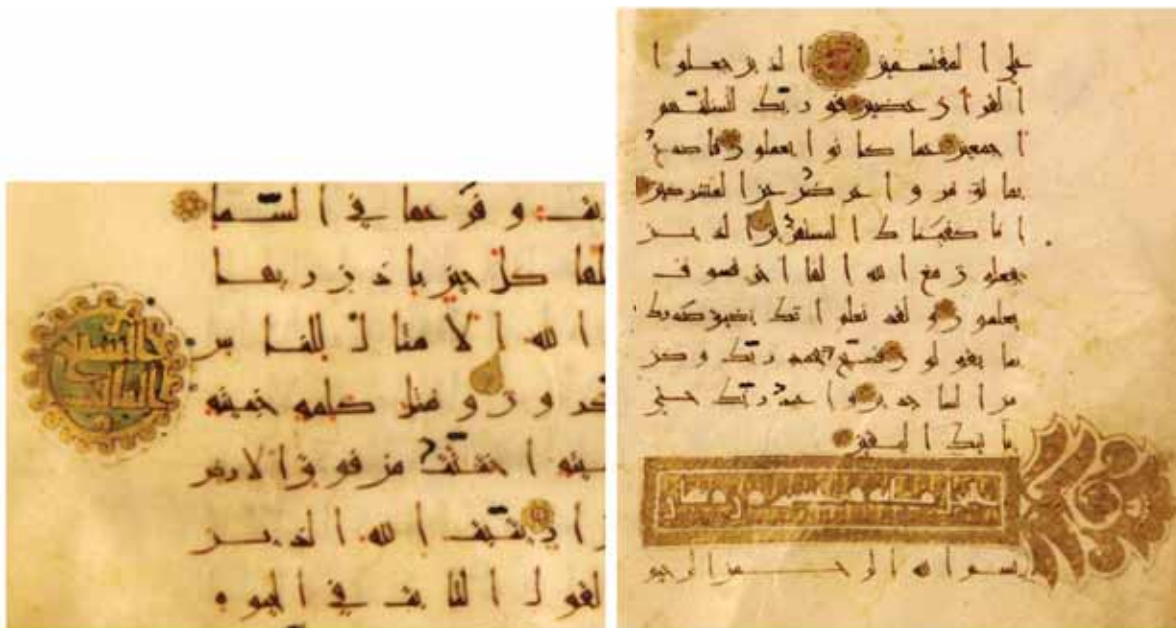 وفرعها في السما
كل حين باذن ربها
الله الامثال للناس
ومثل كلمه خبيثه
اجتثت من فوق الارض
يثبت الله الذين
لقول الثابت في الحيوه
على المقتسمين الذين جعلوا
القران عضين فوربك لنسلنهم
اجمعين عما كانوا يعملون فاصدع
بما تومر واعرض عن المشركين
انا كفينك المستهزين الذين
يجعلون مع الله الها اخر فسوف
يعلمون ولقد نعلم انك يضيق صدرك
بما يقولون فسبح بحمد ربك وكن
من السجدين واعبد ربك حتى
ياتيك اليقين
مائه وعشرون وثمان
بسم الله الرحمن الرحيم